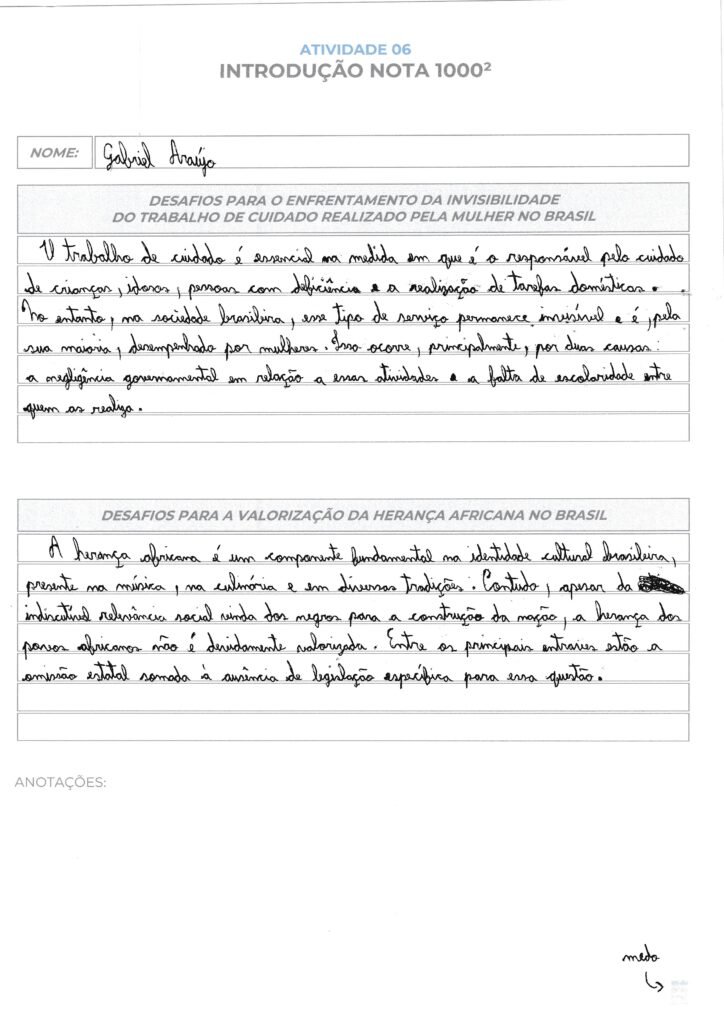 ATIVIDADE 06
INTRODUÇÃO NOTA 1000²
NOME: Gabriel Araújo
DESAFIOS PARA O ENFRENTAMENTO DA INVISIBILIDADE
DO TRABALHO DE CUIDADO REALIZADO PELA MULHER NO BRASIL
O trabalho de cuidado é essencial na medida em que é o responsável pelo cuidado
de crianças, idosos, pessoas com deficiência e a realização de tarefas domésticas.
No entanto, na sociedade brasileira, esse tipo de serviço permanece invisível e é, pela
sua maioria, desempenhado por mulheres. Isso ocorre, principalmente, por duas causas:
a negligência governamental em relação a essas atividades e a falta de escolaridade entre
quem as realiza.
DESAFIOS PARA A VALORIZAÇÃO DA HERANÇA AFRICANA NO BRASIL
A herança africana é um componente fundamental na identidade cultural brasileira,
presente na música, na culinária e em diversas tradições. Contudo, apesar da
indiscutível relevância social vinda dos negros para a construção da nação, a herança dos
povos africanos não é devidamente valorizada. Entre os principais entraves estão a
omissão estatal somada à ausência de legislação específica para essa questão.
ANOTAÇÕES:
medo